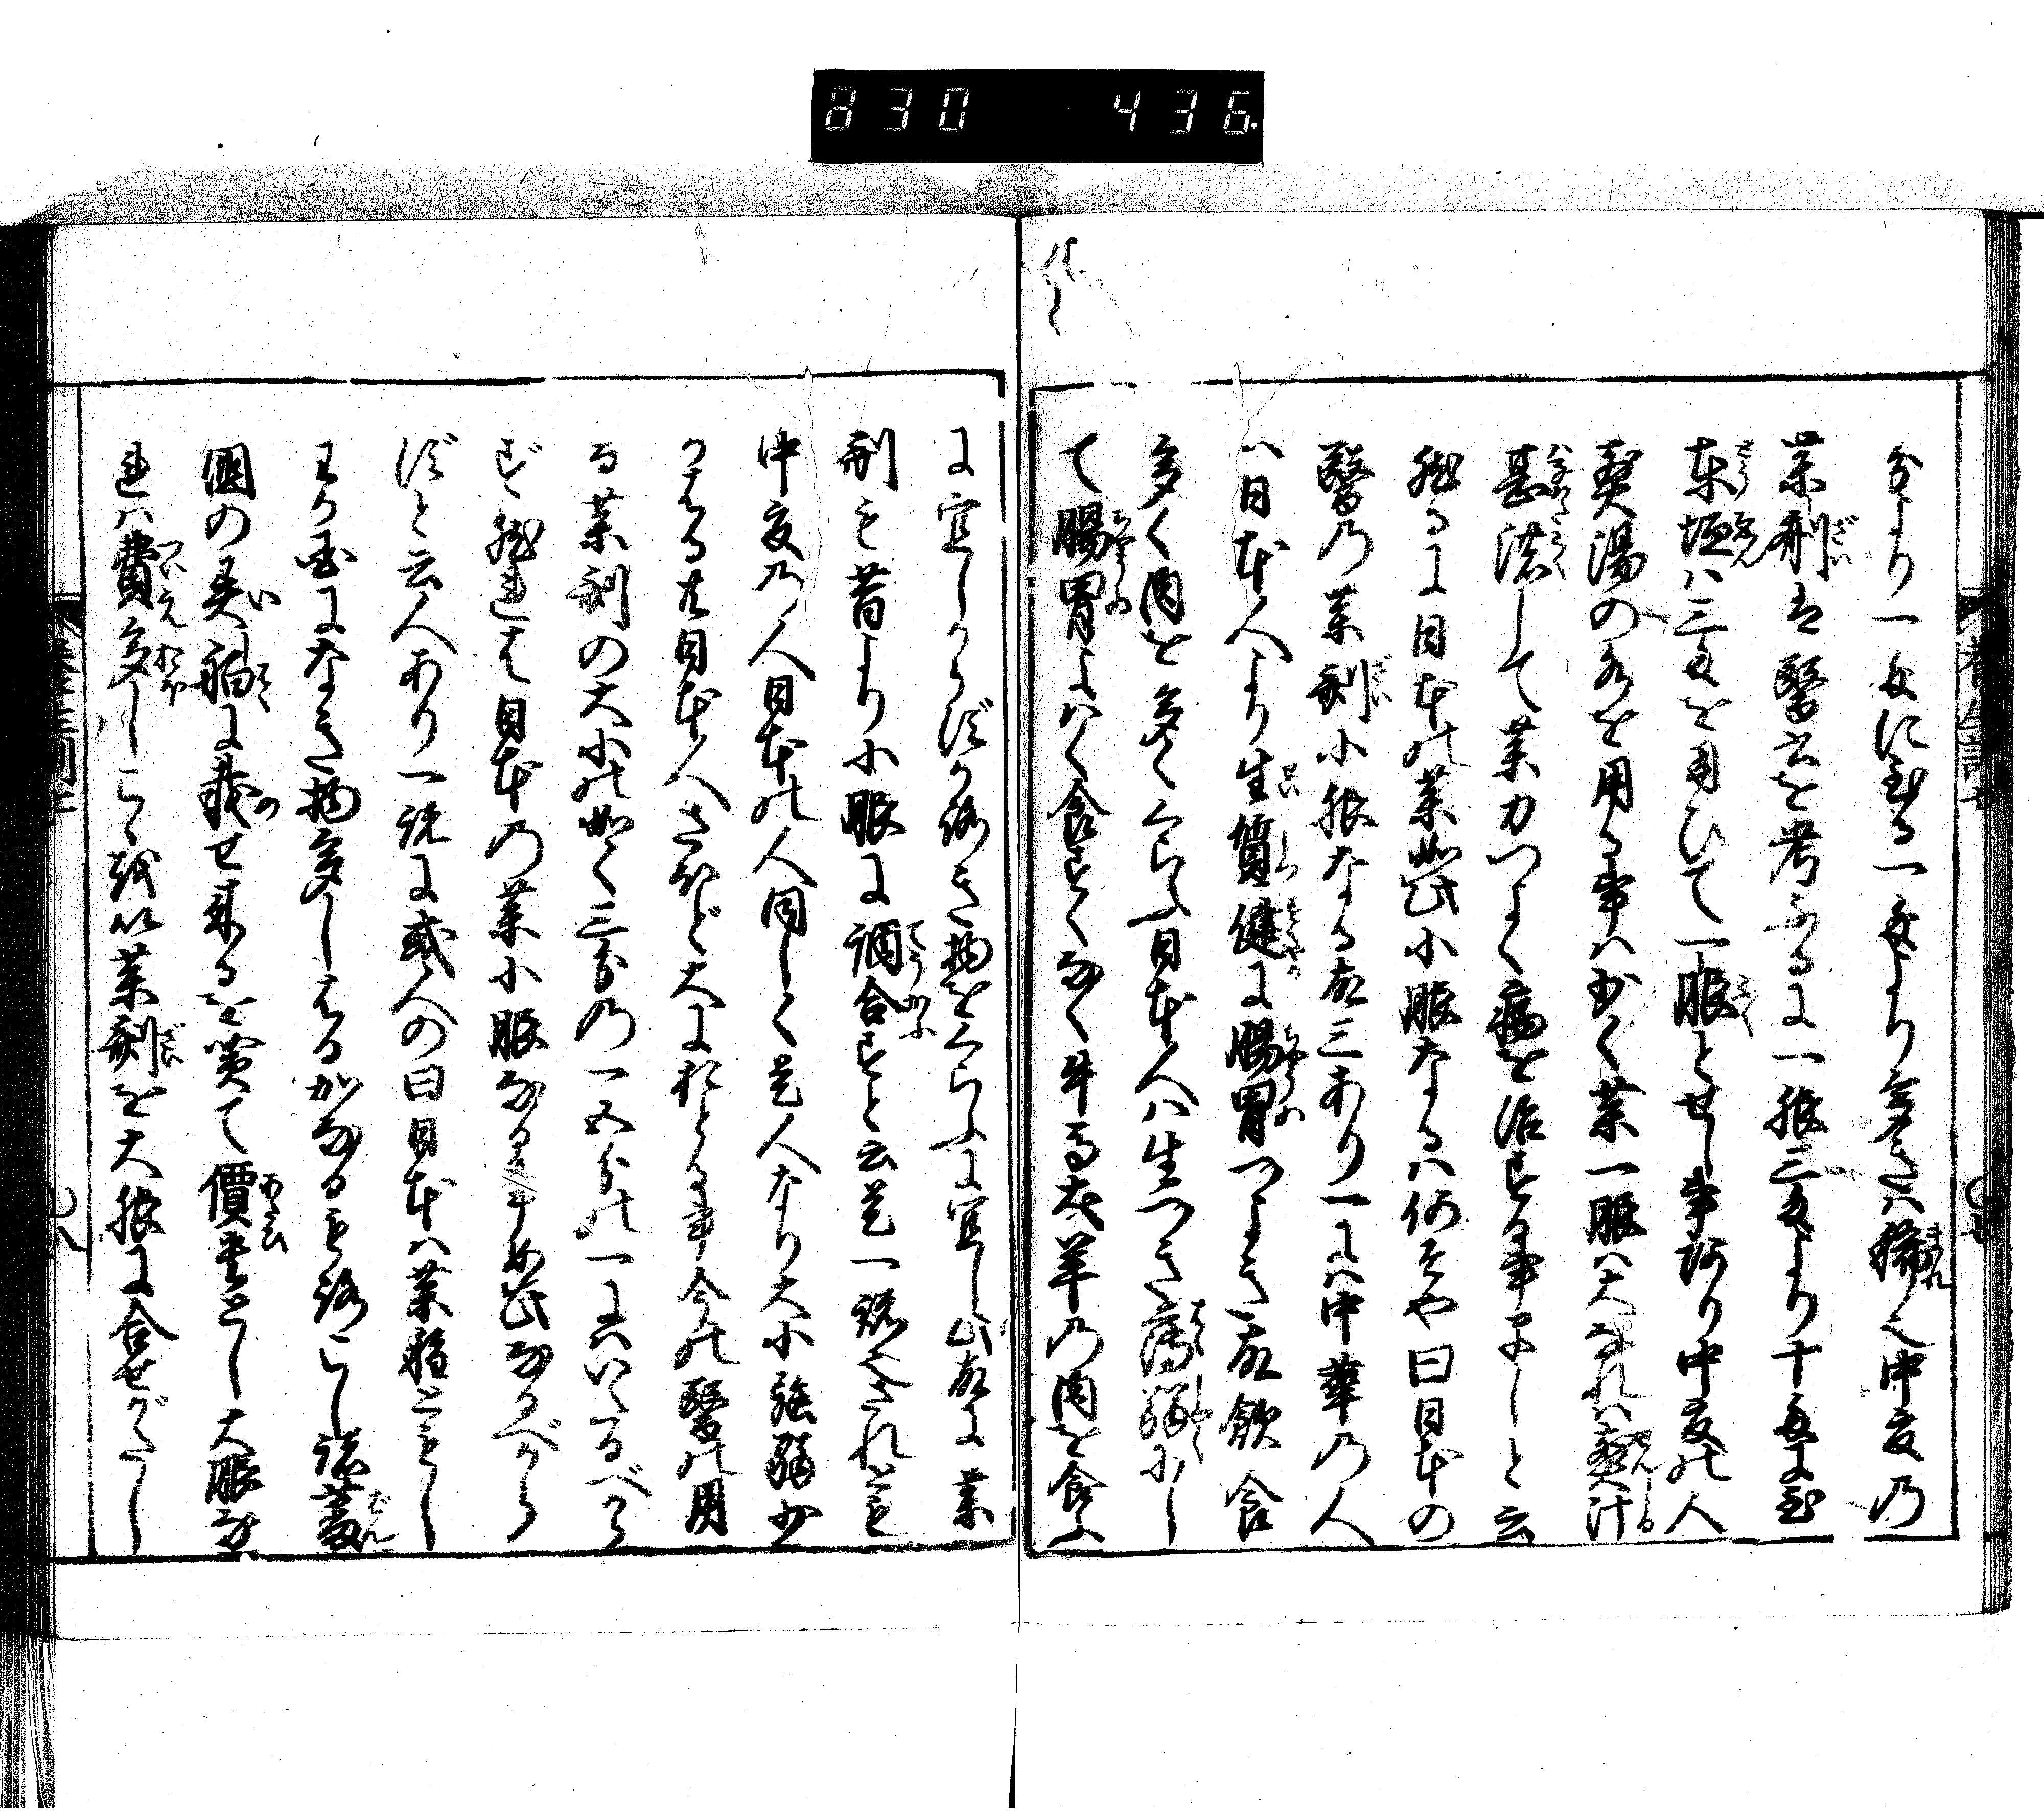 830 436
分より一匁に至る一匁より多きハ稀也中夏の
薬剤は醫書を考ふるに一服三匁より十匁に至る
東垣ハ三匁を用ひて一服とせし事あり中夏の人
煎湯の水を用る事ハ少く薬一服ハ大なれハ煎汁
甚濃して薬力つよく病を治する事早しと云
然るに日本の薬如此小服なるハ何そや曰日本の
醫の薬剤小服なる故三あり一にハ中華の人
ハ日本人より生質健に腸胃つよき故飲食
多く肉を多くくらふ日本人ハ生つき薄弱にし
て腸胃よハく食すくなく牛鳥犬羊の肉を食ふ
に宜しからずかろき物をくらふに宜し此故に薬
剤も昔より小服に調合すと云是一説也されども
中夏の人日本の人同しく是人なり大小強弱少
かはる共日本人さほど大におとる事今の醫の用
る薬剤の大小の如く三分の一五分の一にはいたるべから
ず然れは日本の薬小服なる事如此なるべから
ずと云人あり一説に或人の曰日本ハ薬種ともし
わか国になき物多しはるかなるもろこし諸蕃
國の異舶に載せ来るを買て價貴とし大服なれハ
費多しこゝを以薬剤を大服に合せがたし